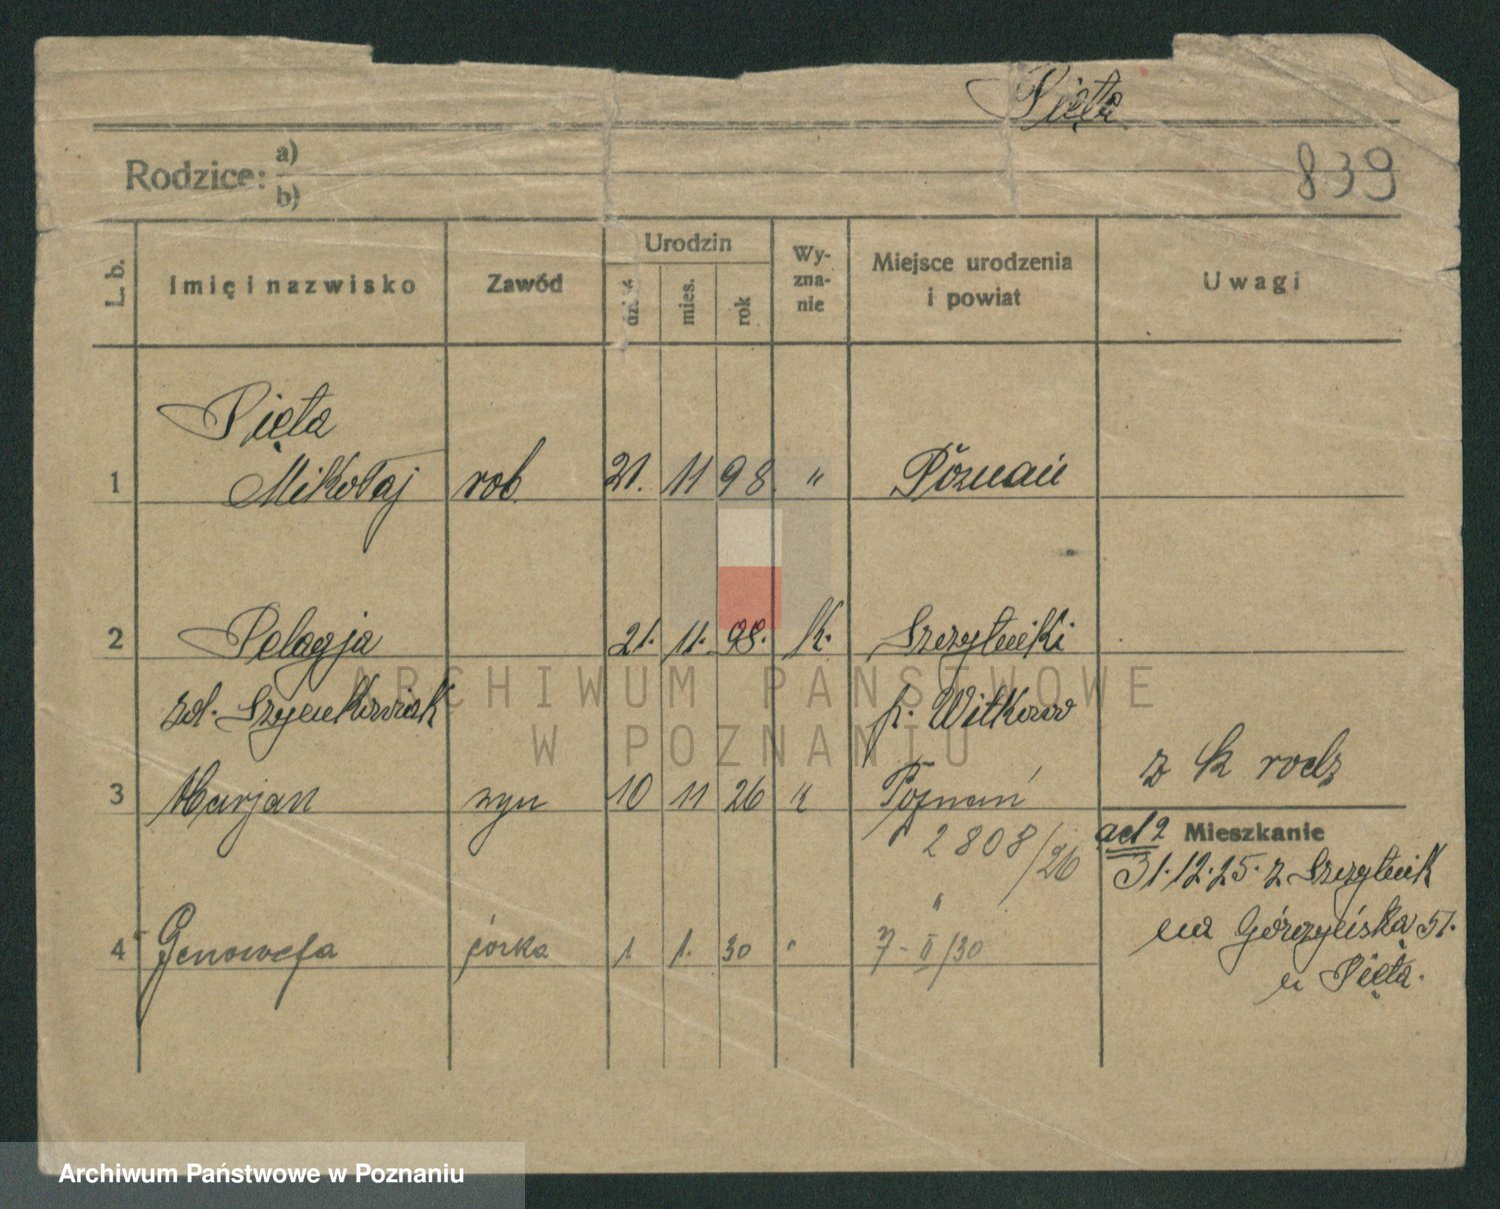 Pięta
Rodzice: a)
b)
839
L. b. Imię i nazwisko Zawód Urodzin dzień mies. rok Wy-zna-nie Miejsce urodzenia i powiat Uwagi
Pięta
1 Mikołaj rob. 21. 11 98 " Poznań
2 Pelagja 21. 11. 98. k. Szczytniki
zd. Szymkowiak p. Witkowo
z k rodz
3 Marjan syn 10 11 26 k Poznań
2808/26
ad 2 Mieszkanie
31.12.25. z Szczytnik
"
na Górczyńska 51.
4 Genowefa córka 1 1. 30 " 7-II/30
u Pięta.
ARCHIWUM PAŃSTWOWE
W POZNANIU
Archiwum Państwowe w Poznaniu